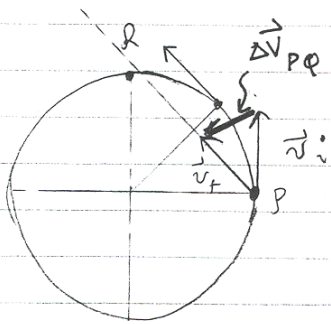 R
ΔV⃗ PQ
v⃗ i
v⃗ f
P